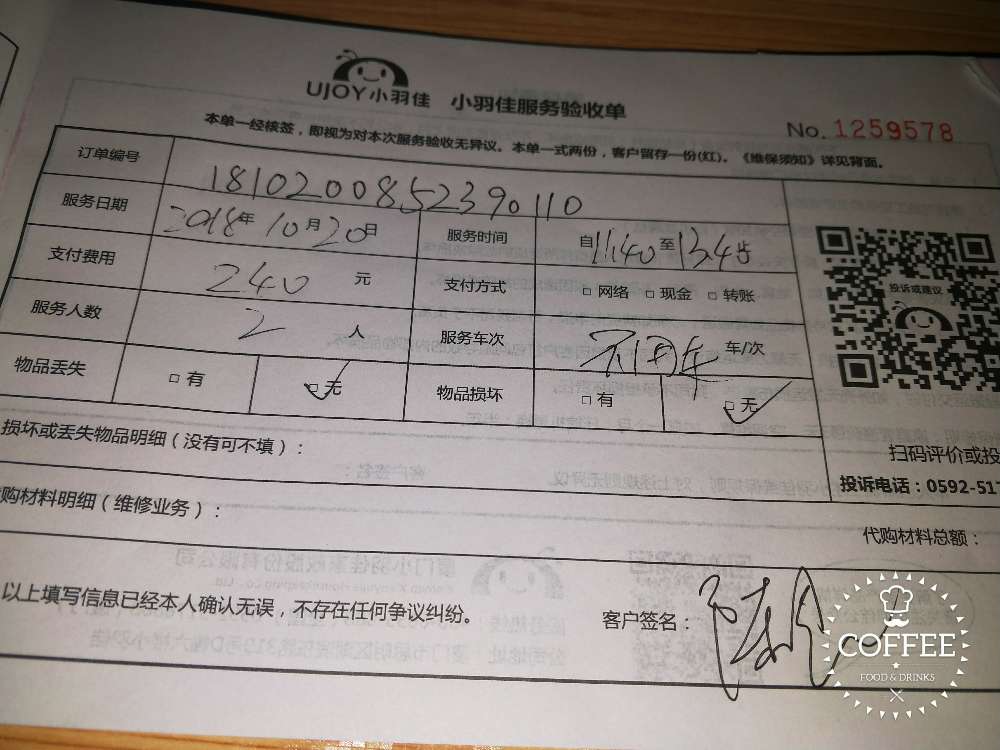 UJOY小羽佳 小羽佳服务验收单
No. 1259578
本单一经核签，即视为对本次服务验收无异议。本单一式两份，客户留存一份(红)。《维保须知》详见背面。
订单编号 1810200852390110
服务日期 2018年10月20日 服务时间 自11:40至13:45
支付费用 240 元 支付方式 □ 网络 □ 现金 □ 转账
投诉或建议
服务人数 2 人 服务车次 不用车 车/次
物品丢失 □ 有 □ 无 物品损坏 □ 有 □ 无
损坏或丢失物品明细（没有可不填）：
扫码评价或投
投诉电话：0592-517
购材料明细（维修业务）：
代购材料总额：
以上填写信息已经本人确认无误，不存在任何争议纠纷。
客户签名：
COFFEE
FOOD & DRINKS